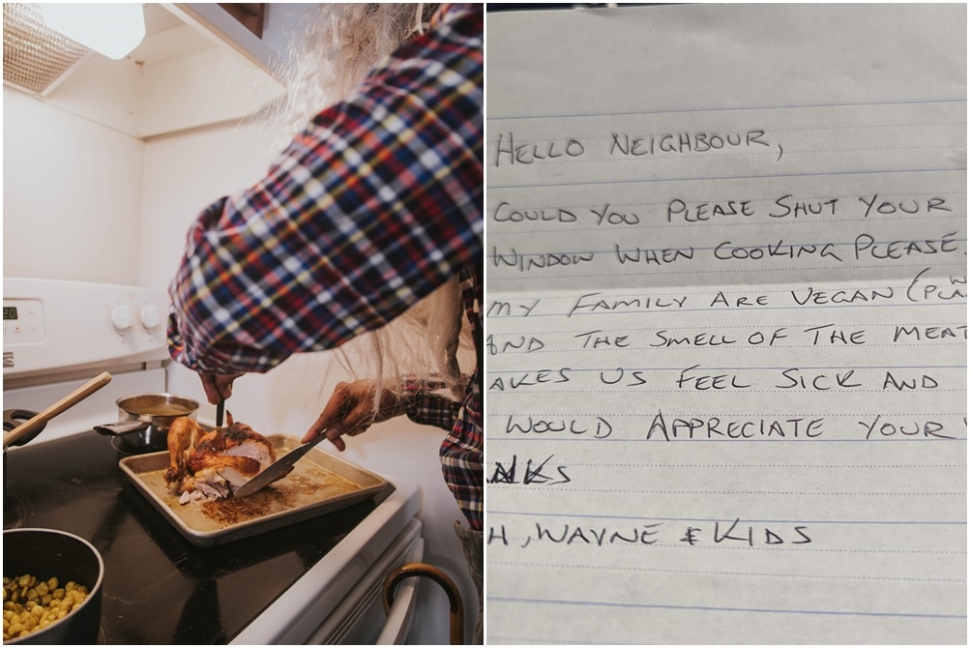 HELLO NEIGHBOUR,
COULD YOU PLEASE SHUT YOUR
WINDOW WHEN COOKING PLEASE.
MY FAMILY ARE VEGAN
AND THE SMELL OF THE MEAT
AKES US FEEL SICK AND
WOULD APPRECIATE YOUR
NKS
H, WAYNE & KIDS